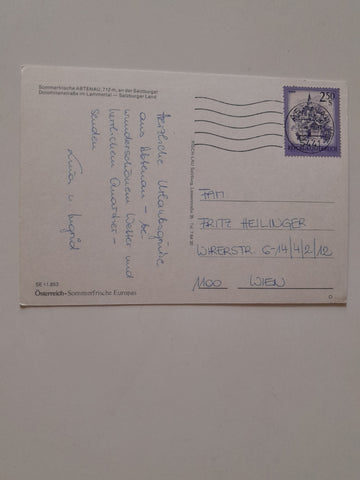 Sommerfrische ABTENAU, 712 m, an der Salzburger
Dolomitenstraße im Lammertal — Salzburger Land
Herzliche Urlaubsgrüße
aus Abtenau - bei
wunderschönem Wetter und
herrlichem Quartier -
senden
u Ingrid
SE 11.853
Österreich-Sommerfrische Europas
2.50
S
REPUBLIK ÖSTERREICH
FAM
FRITZ HEILINGER
WIRERSTR. 6-14/4/2/12
1100 WIEN